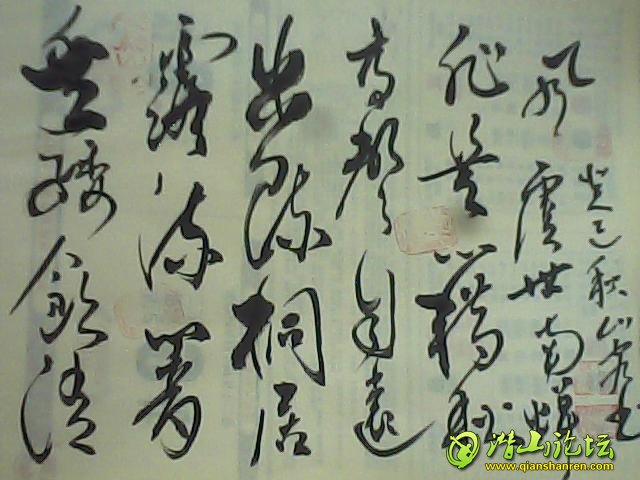 垂緌飲清
露流響
出疏桐居
高聲自遠
非是藉秋
风 虞世南蟬
癸巳秋山客书
潜山论坛
www.qianshanren.com